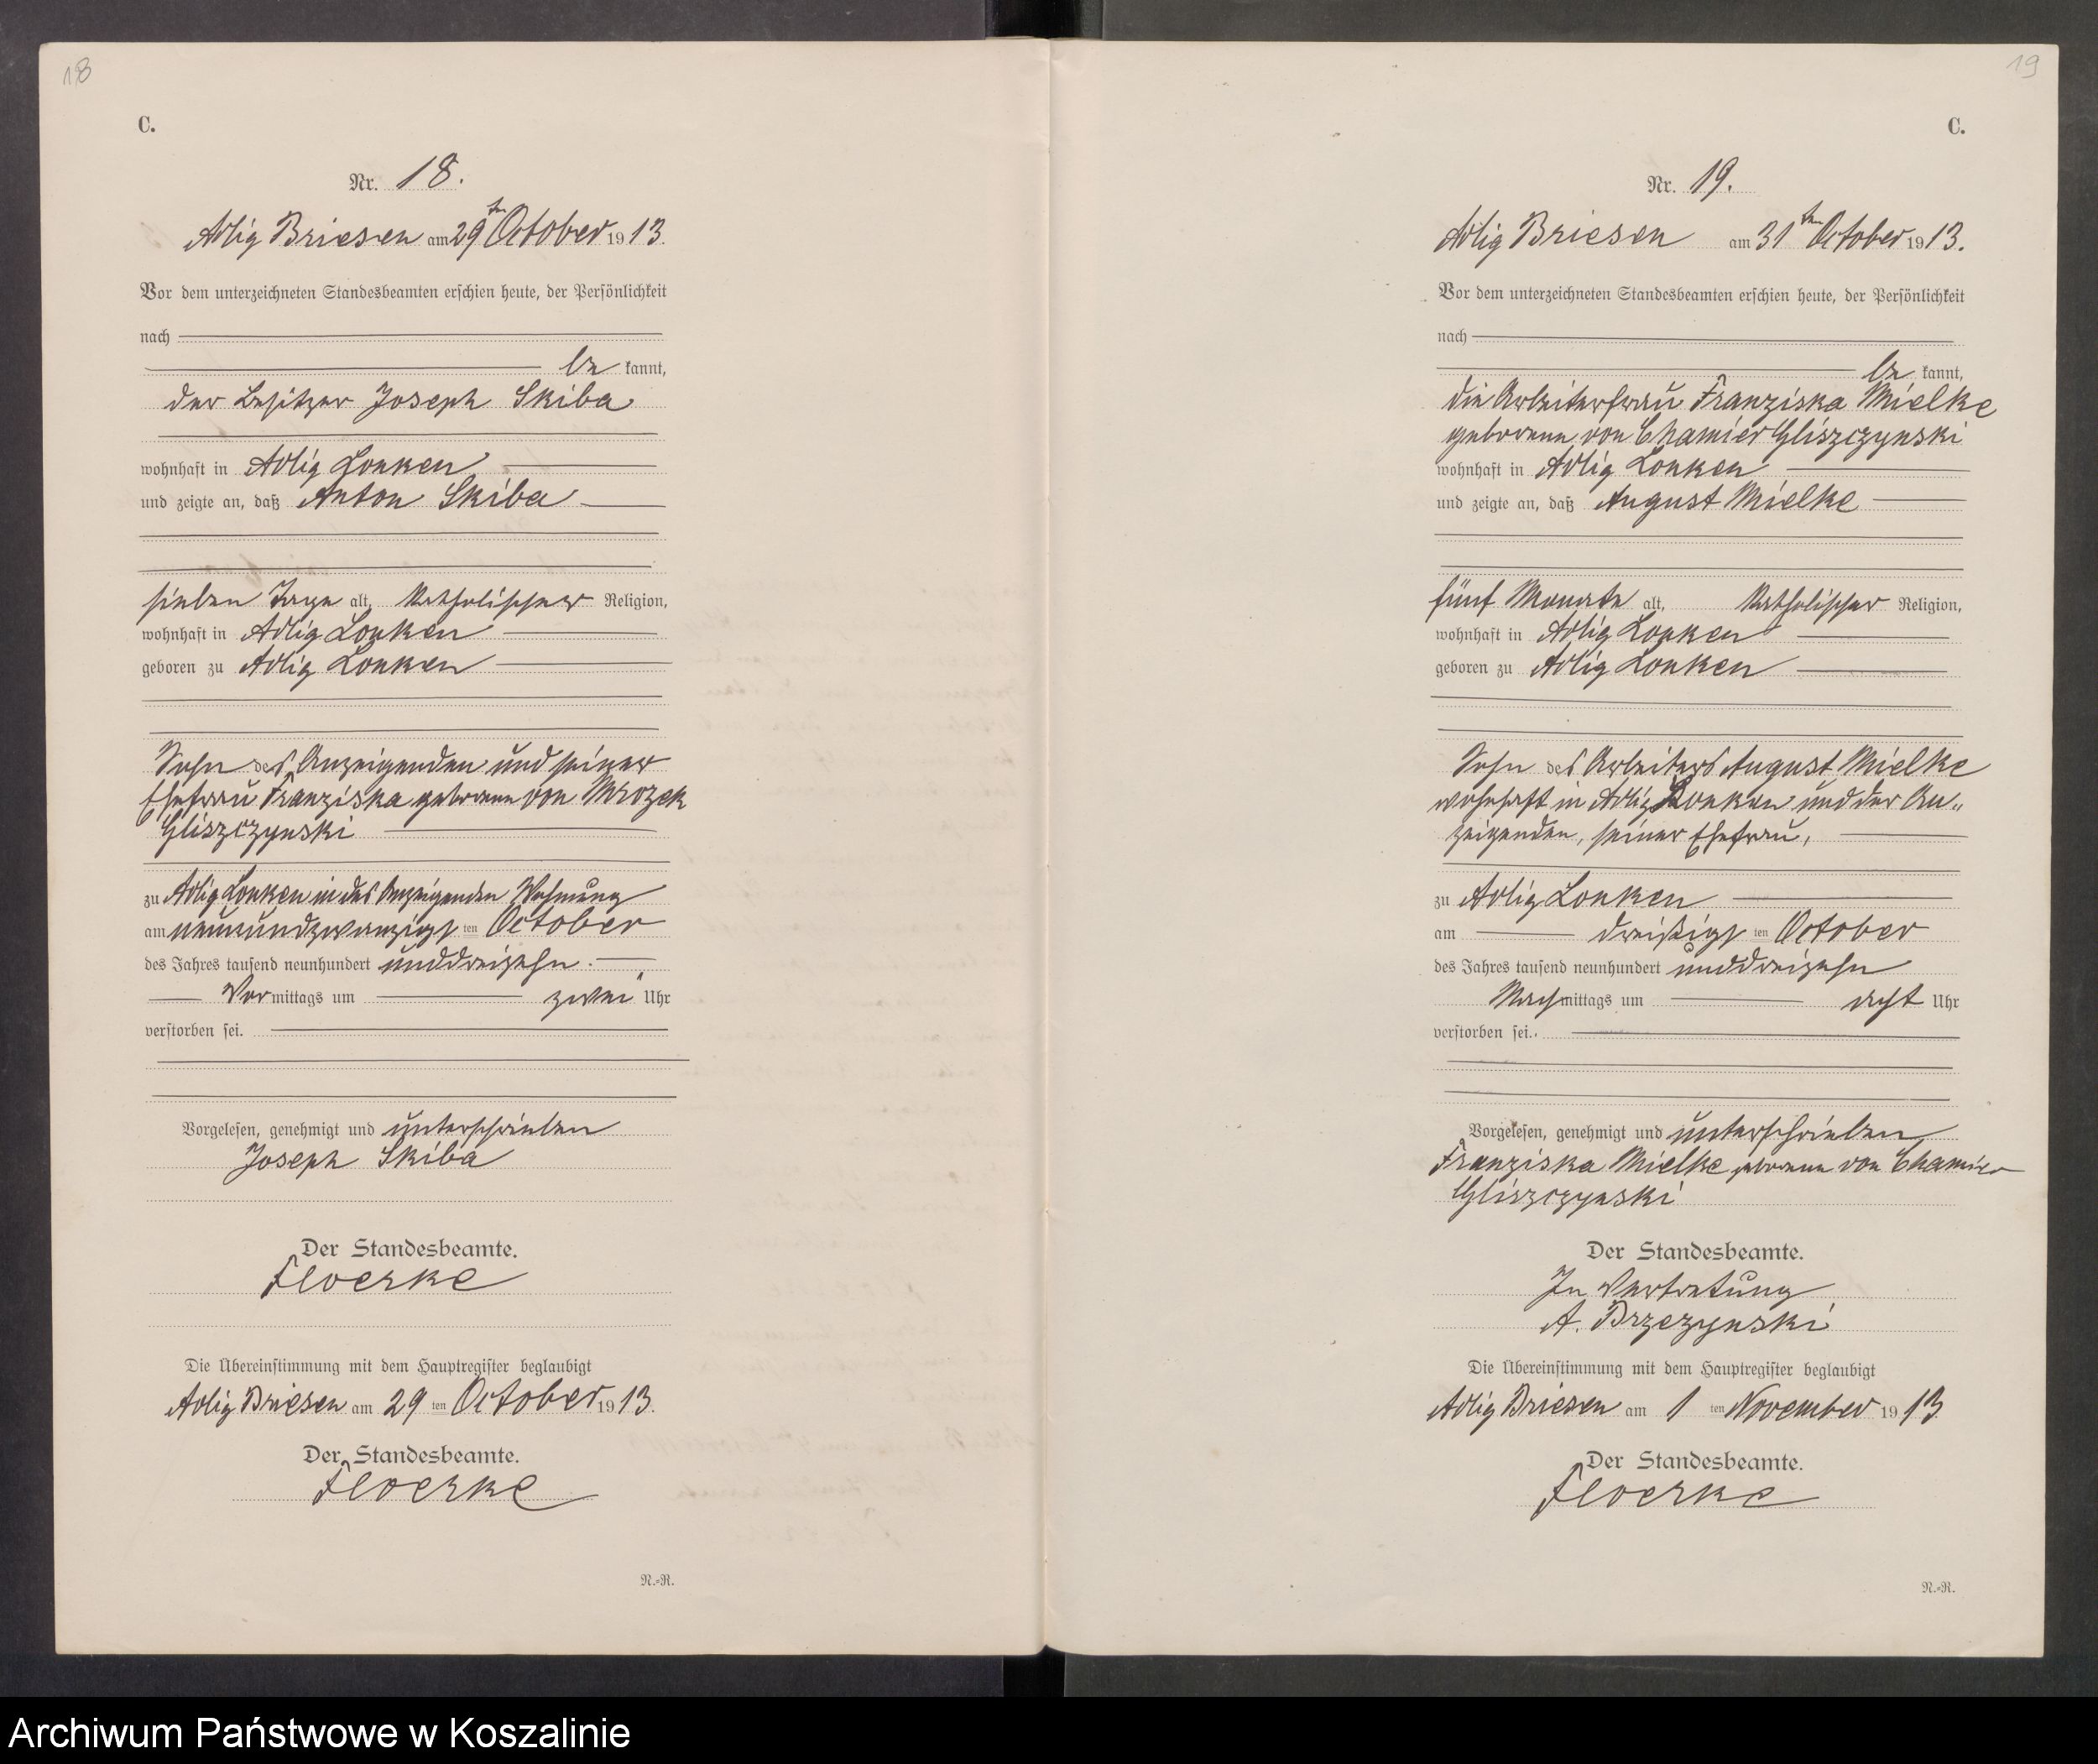 18
C.
Nr. 18.
Adlig Briesen am 29ten October 1913.
Vor dem unterzeichneten Standesbeamten erschien heute, der Persönlichkeit
nach
be kannt,
der Besitzer Joseph Skiba
wohnhaft in Adlig Lonken
und zeigte an, daß Anton Skiba
sieben Tage alt, katholischer Religion,
wohnhaft in Adlig Lonken
geboren zu Adlig Lonken
Sohn des Anzeigenden und seiner
Ehefrau Franziska geborene von Mrozek
Gliszczynski
zu Adlig Lonken in des Anzeigenden Wohnung
am neunundzwanzigs ten October
des Jahres tausend neunhundert unddreizehn.
Vormittags um zwei Uhr
verstorben sei.
Vorgelesen, genehmigt und unterschrieben
Joseph Skiba
Der Standesbeamte.
Floerke
Die Übereinstimmung mit dem Hauptregister beglaubigt
Adlig Briesen am 29 ten October 1913.
Der Standesbeamte.
Floerke
N.=R.
19
C.
Nr. 19.
Adlig Briesen am 31ten October 1913.
Vor dem unterzeichneten Standesbeamten erschien heute, der Persönlichkeit
nach
be kannt,
die Arbeiterfrau Franziska Mielke
geborene von Chamier Gliszczynski
wohnhaft in Adlig Lonken
und zeigte an, daß August Mielke
fünf Monate alt, katholischer Religion,
wohnhaft in Adlig Lonken
geboren zu Adlig Lonken
Sohn des Arbeiters August Mielke
wohnhaft in Adlig Lonken und der An„
zeigenden, seiner Ehefrau,
zu Adlig Lonken
am dreißigs ten October
des Jahres tausend neunhundert unddreizehn
Nachmittags um acht Uhr
verstorben sei.
Vorgelesen, genehmigt und unterschrieben
Franziska Mielke geborene von Chamier
Gliszczynski
Der Standesbeamte.
In Vertretung
A. Brzezynski
Die Übereinstimmung mit dem Hauptregister beglaubigt
Adlig Briesen am 1 ten November 1913
Der Standesbeamte.
Floerke
N.=R.
Archiwum Państwowe w Koszalinie